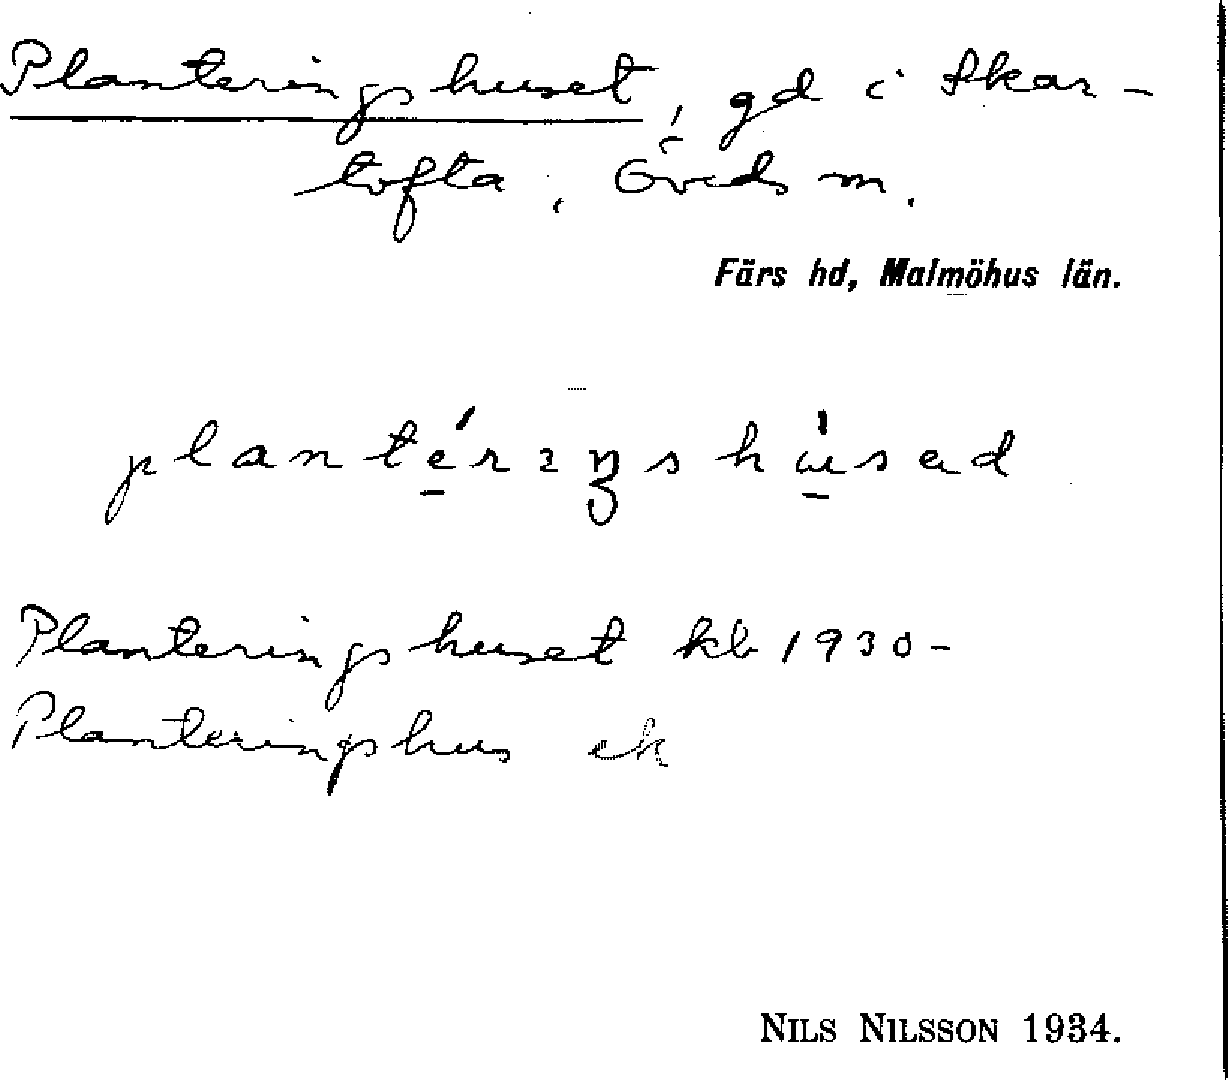 Planteringshuset, gd i Skar-
tofta, Öveds sn.
Färs hd, Malmöhus län.
plantérıŋshúsəd
Planteringshuset kb 1930-
Planteringshus ek
NILS NILSSON 1934.